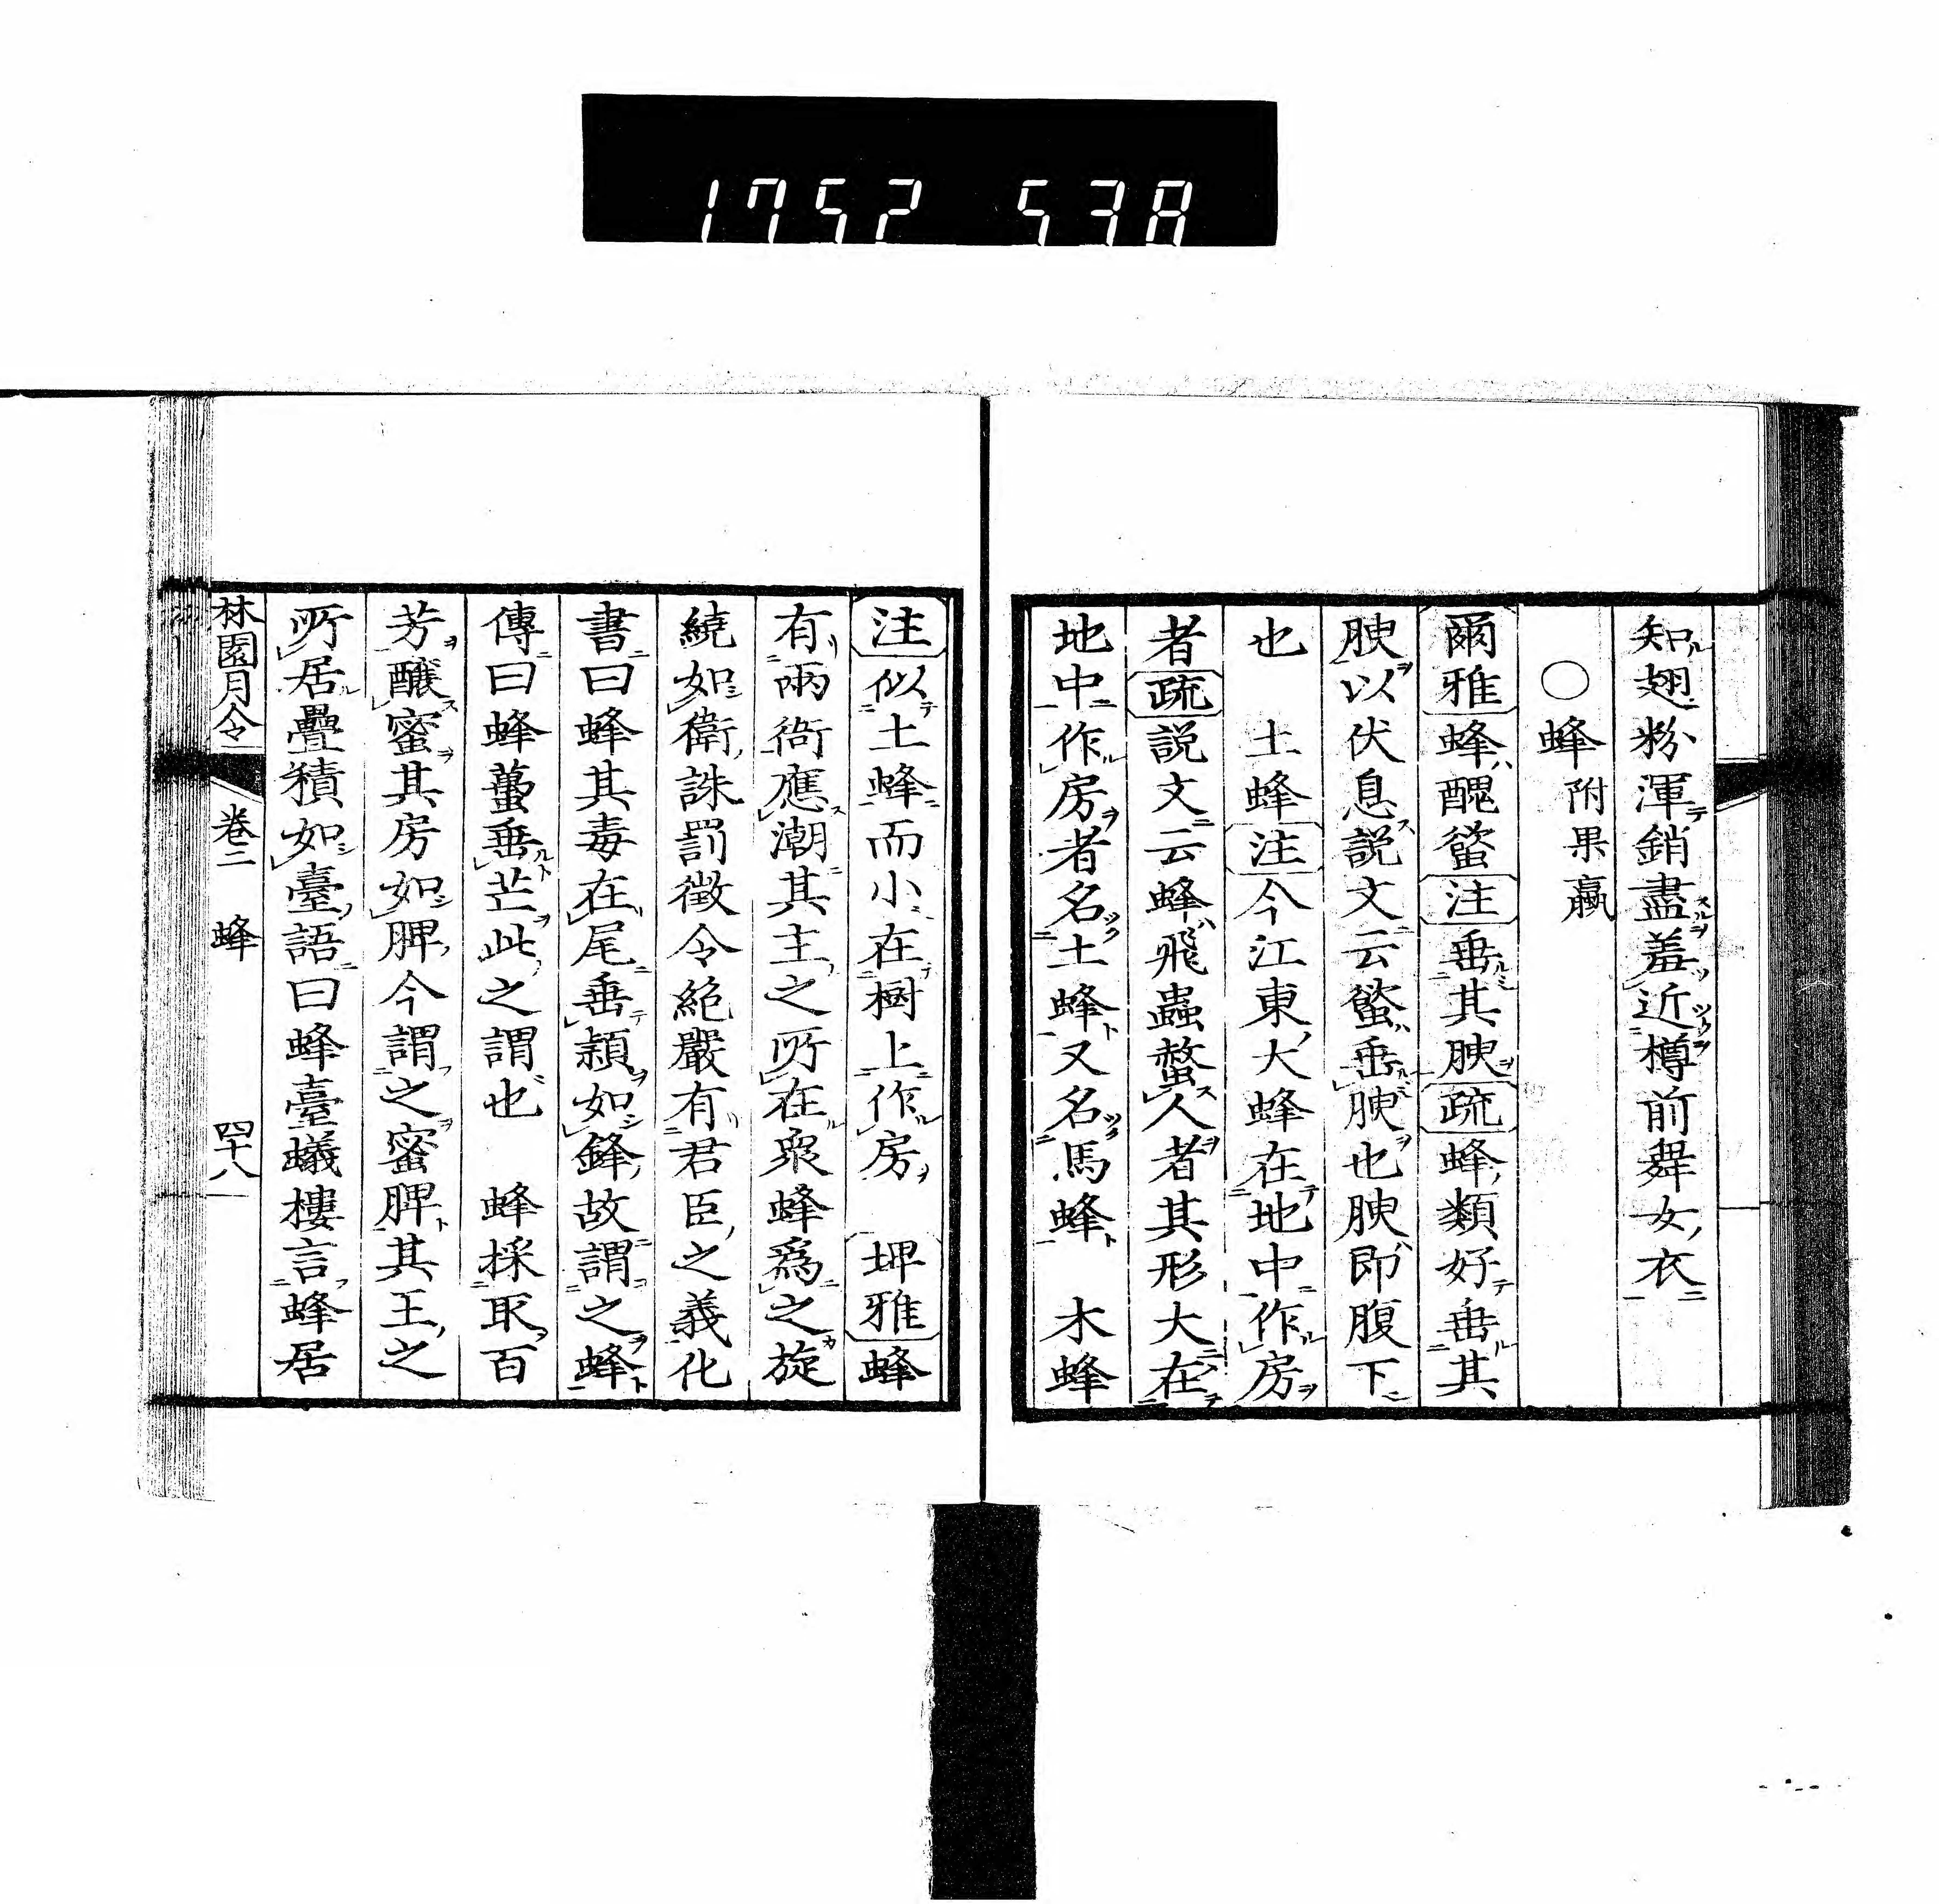 1752 538
知翅粉渾銷盡羞近樽前舞女衣
○蜂附果蠃
爾雅蜂醜螸注垂其腴疏蜂類好垂其
腴以伏息説文云螸垂腴也腴即腹下
也　土蜂注今江東大蜂在地中作房
者疏説文云蜂飛蟲螫人者其形大在
地中作房者名土蜂又名馬蜂　木蜂
注似土蜂而小在樹上作房　埤雅蜂
有兩衙應潮其主之所在衆蜂爲之旋
繞如衛誅罰徴令絶嚴有君臣之義化
書曰蜂其毒在尾垂穎如鋒故謂之蜂
傳曰蜂蠆垂芒此之謂也　蜂採取百
芳釀蜜其房如脾今謂之蜜脾其王之
所居疊積如臺語曰蜂臺蟻樓言蜂居
林園月令　卷二　蜂　四十八